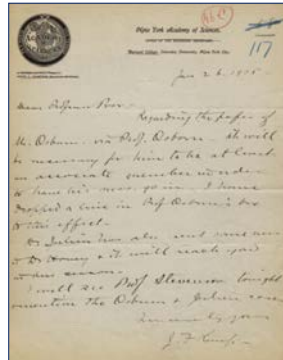 New York Academy of Sciences.
117
Jan 26, 1905
Dear Professor
Regarding the paper of
Mr. Osburn via Prof. Osborn it will
be necessary for him to be at least
an associate member in order
to have his mss. go in. I have
dropped a line in Prof Osborn's box
to this effect.
Dr Julien has also
to Dr Hovey & it will reach you
in due season.
I will see Prof Stevenson tonight
& mention the Osburn & Julien
yours
J. F. Kemp